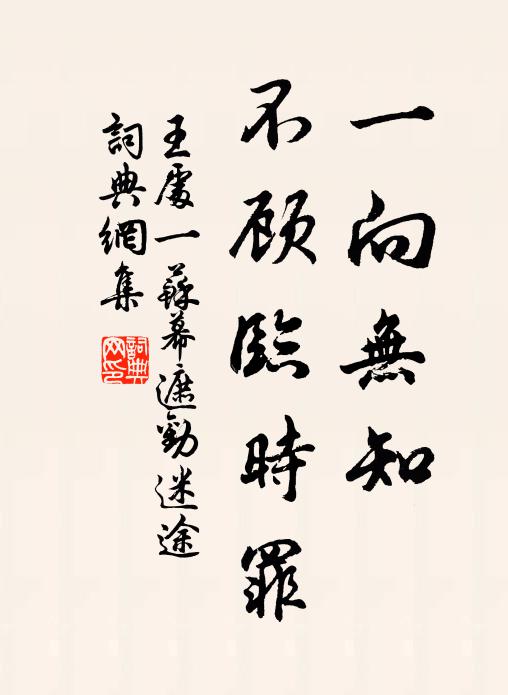 一向無知
不顧臨時罪
王處一蘇幕遮勸迷途
詞典網集
詞典網印